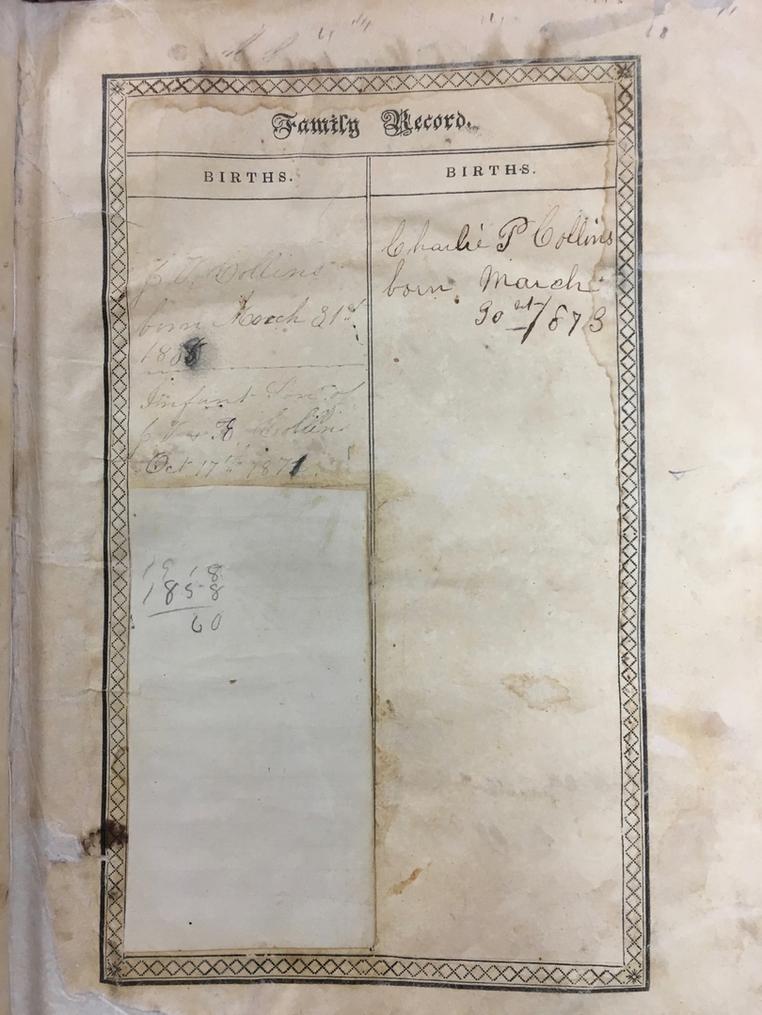 Family Record.
BIRTHS.
J. V. Collins
born March 31st
Infant Son of
J V & Collins
Oct 17th 1871
1918
1858
60
BIRTHS.
Charlie P Collins
born March
30 st 1873